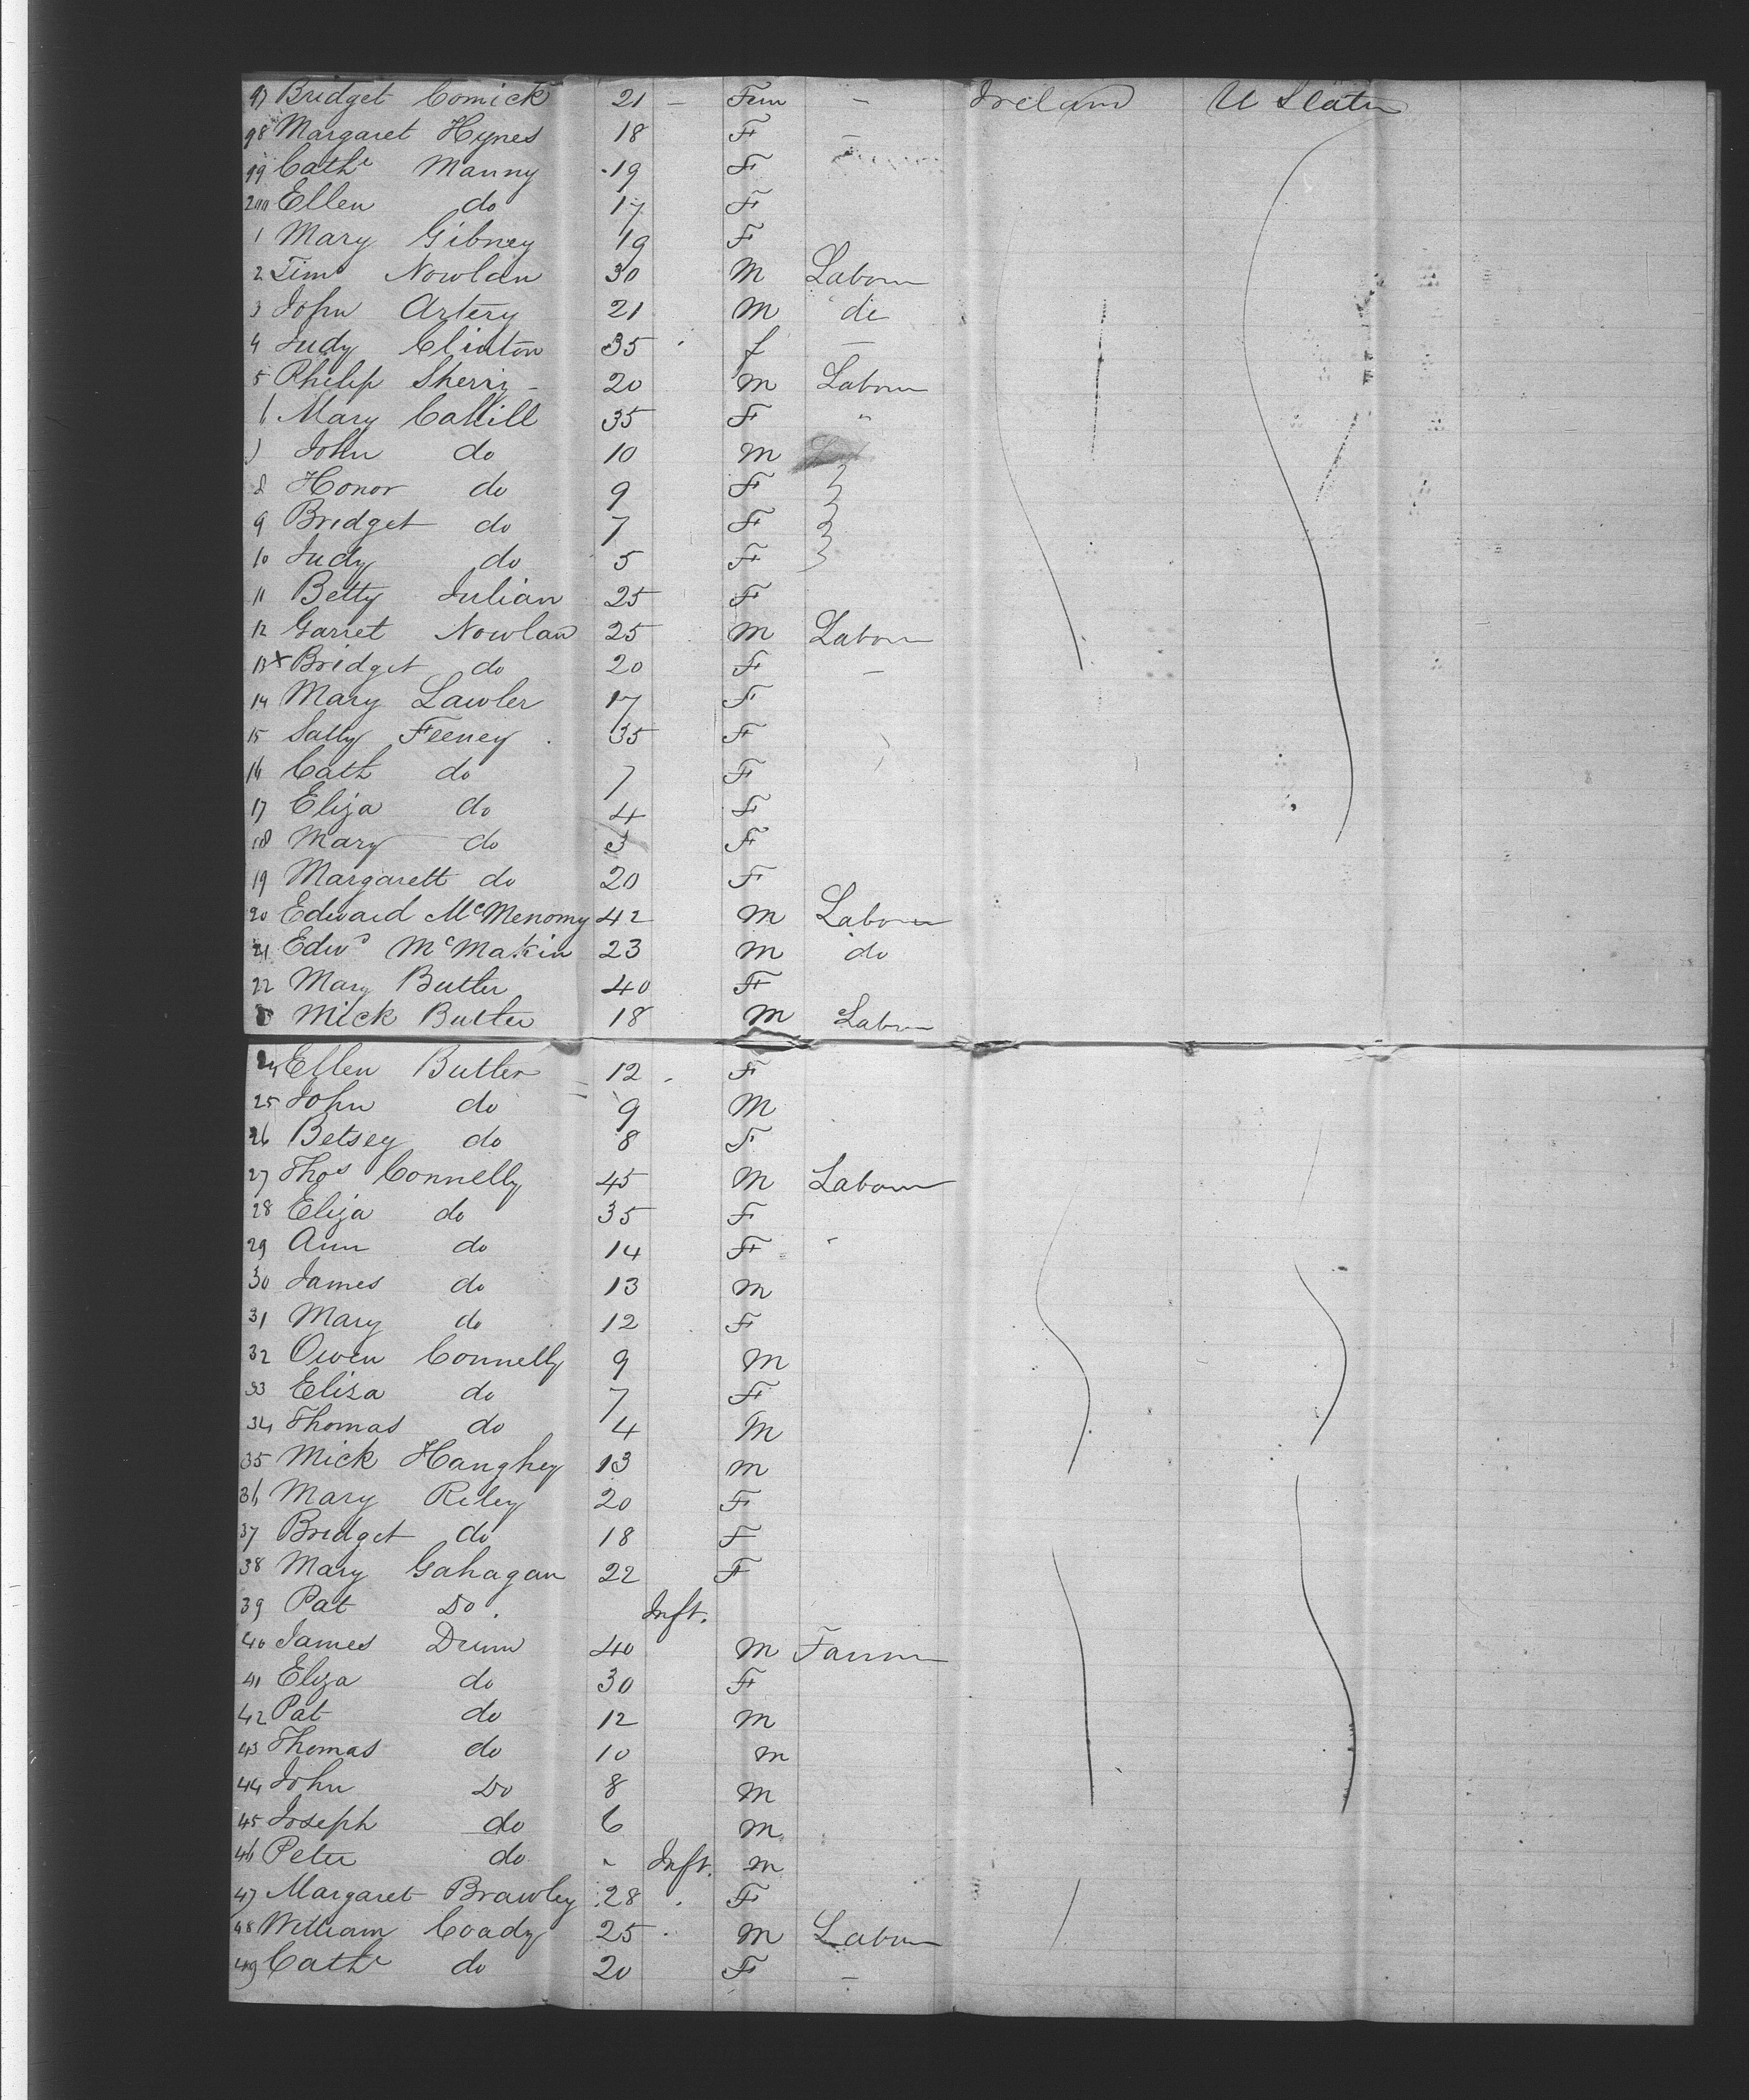 97 Bridget Comick 21 – Fem – Ireland U States
98 Margaret Hynes 18 F –
99 Cathe Manny 19 F
200 Ellen do 17 F
1 Mary Gibney 19 F
2 Tim Nowlan 30 M Labour
3 John Artery 21 M do
4 Judy Clinton 35 f –
5 Philip Sherry 20 M Labour
6 Mary Cahill 35 F "
7 John do 10 M
8 Honor do 9 F
9 Bridget do 7 F
10 Judy do 5 F
11 Betty Julian 25 F
12 Garret Nowlan 25 M Labour
13 x Bridget do 20 F –
14 Mary Lawler 17 F
15 Sally Feeney 35 F
16 Cath do 7 F
17 Eliza do 4 F
18 Mary do 3 F
19 Margarett do 20 F
20 Edward McMenomy 42 M Labour
21 Edwd McMakin 23 M do
22 Mary Butler 40 F
Mick Butler 18 M Labour
24 Ellen Butler 12 F
25 John do 9 M
26 Betsey do 8 F
27 Thos Connelly 45 M Labour
28 Eliza do 35 F
29 Ann do 14 F
30 James do 13 M
31 Mary do 12 F
32 Owen Connelly 9 M
33 Eliza do 7 F
34 Thomas do 4 M
35 Mick Hanghey 13 M
36 Mary Riley 20 F
37 Bridget do 18 F
38 Mary Gahagan 22 F
39 Pat Do. Inft.
40 James Drum 40 M Farmer
41 Eliza do 30 F
42 Pat do 12 M
43 Thomas do 10 M
44 John Do 8 M
45 Joseph do 6 M
46 Peter do - Inft. M
47 Margaret Brawley 28 F
48 William Coady 25 M Labour
49 Cathe do 20 F –